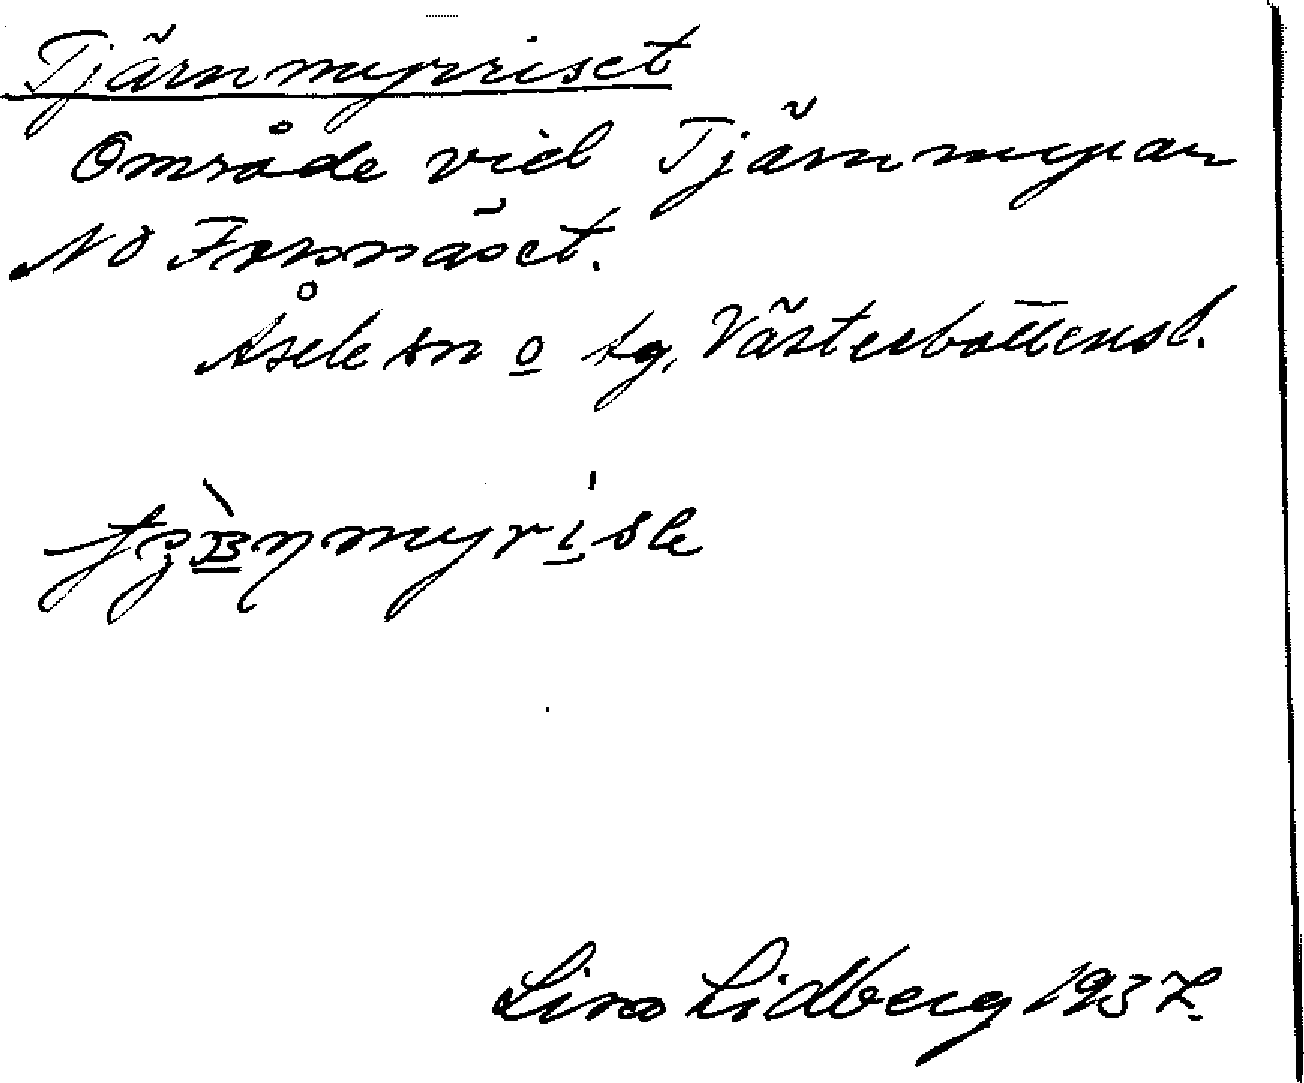 Tjärnmyrriset
Område vid Tjärnmyran
NO Forsnäset.
Åsele sn o tg, Västerbottensl.
myrisle
Lino Lidberg 1937.